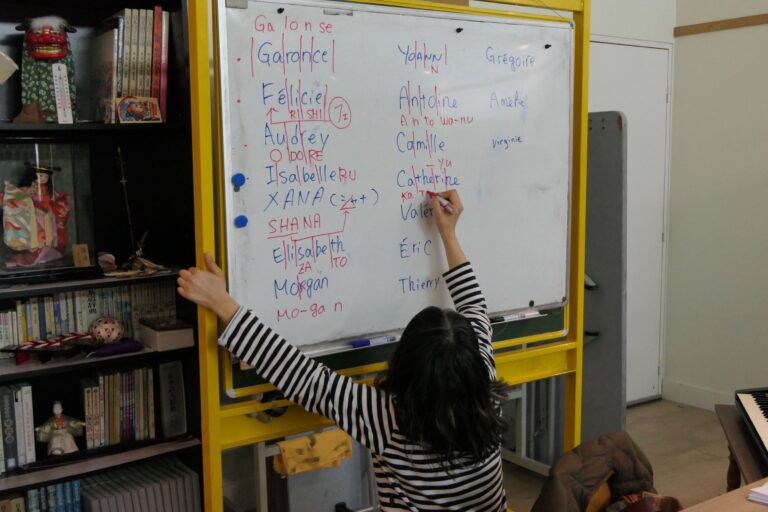 Ga lon se
Garance
Félicie
RI SHI
Audrey
O DO RE
Isabelle RU
XANA
SHANA
Elisabeth
ZA TO
Morgan
Mo-ga n
YOANN
N
Antoine
An to wa-nu
Camille
yu
Catherine
Ka
Valér
Éric
Thierry
Grégoire
Amélie
Virginie